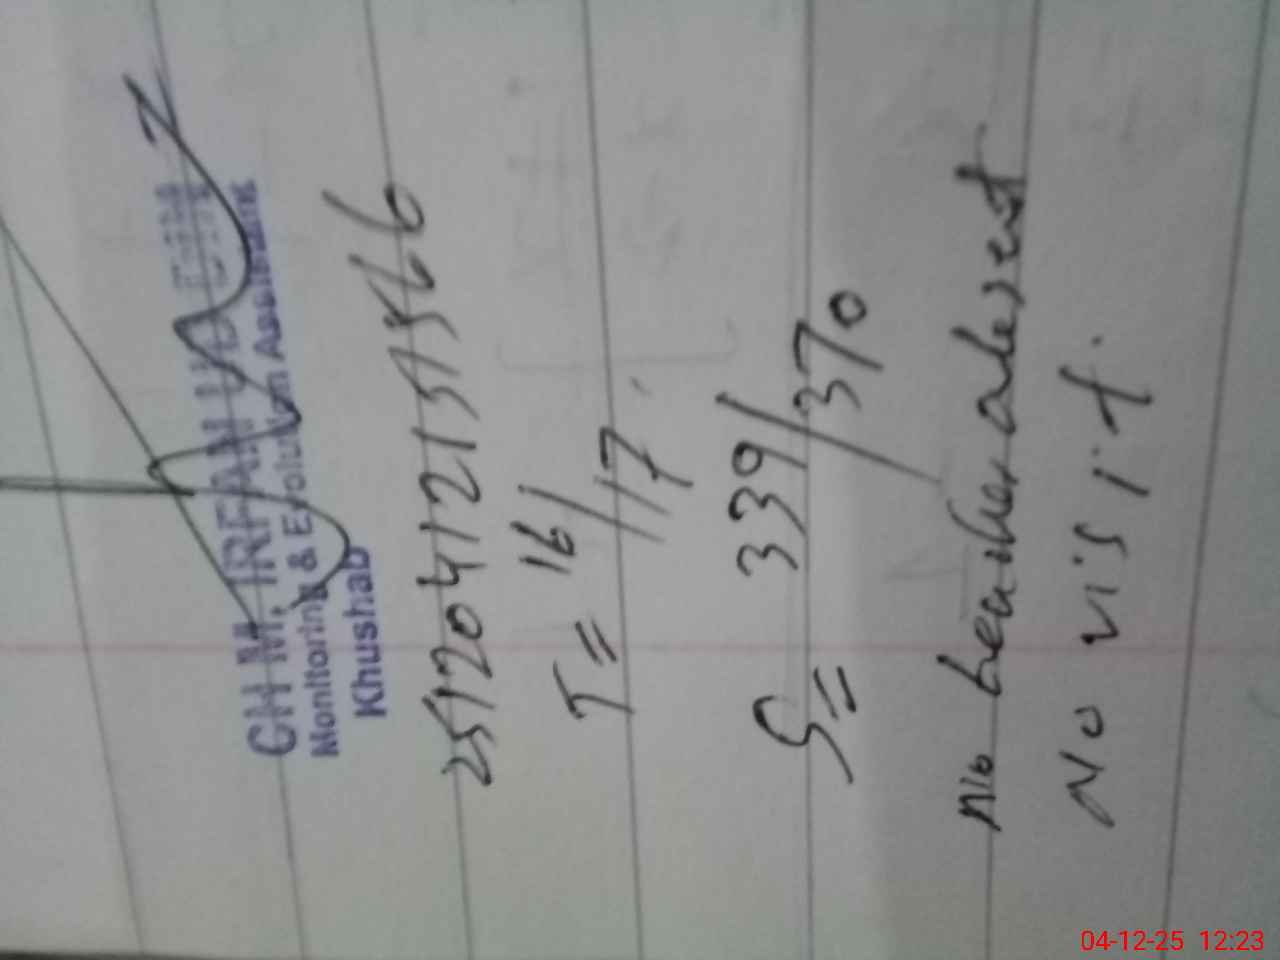 CH M. IRFAN UD DIN
Monitoring & Evolution Assistant
Khushab
25120412137566
T = 16/17
S = 339/370
No teacher absent
No visit.
04-12-25 12:23